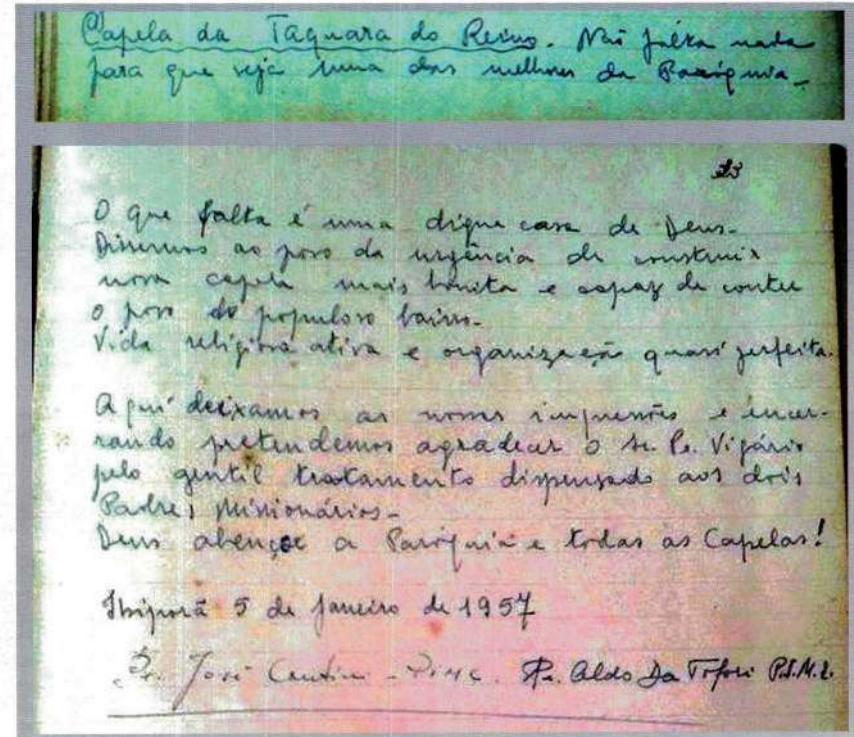 Capela da Taquara do Reino. Não falta nada
para que seja uma das melhores da Paróquia_
23
O que falta é uma digna casa de Deus_
Dissemos ao povo da urgência de construir
nova capela mais bonita e capaz de conter
o povo do populoso bairro_
Vida religiosa ativa e organização quasi perfeita.
Aqui deixamos as nossas impressões e encer-
rando pretendemos agradecer o Sr. Pe. Vigário
pelo gentil tratamento dispensado aos dois
Padres Missionários_
Deus abençoe a Paróquia e todas as Capelas!
Ibiporã 5 de Janeiro de 1957
Pe. José - PIME. Pe. Aldo Da Tofori P.I.M.E.